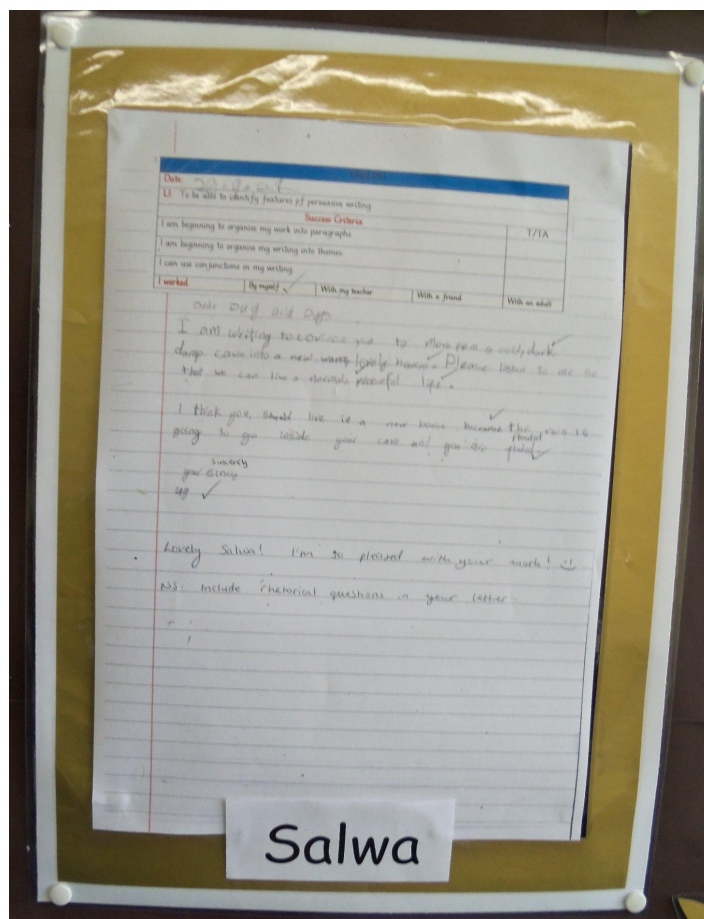 Date:
LI: To be able to identify features of persuasive writing
Success Criteria
I am beginning to organise my work into paragraphs
T/TA
I am beginning to organise my writing into themes
I can use conjunctions in my writing
I worked
By myself
With my teacher
With a friend
With an adult
I am writing to you to move from a cold, dark
damp cave into a new warm lovely Please listen to me so
that we can live a normal peaceful life.
I think you should live in a new house because the rain is
going to go inside your cave and
sincerely
ug
Lovely Salwa! I'm so pleased with your work! :)
NSS: Include rhetorical questions in your letter
Salwa